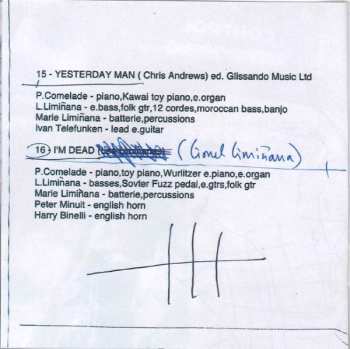 15 - YESTERDAY MAN ( Chris Andrews) ed. Glissando Music Ltd
P.Comelade - piano,Kawai toy piano,e.organ
L.Limiñana - e.bass,folk gtr,12 cordes,moroccan bass,banjo
Marie Limiñana - batterie,percussions
Ivan Telefunken - lead e.guitar
16 - I'M DEAD (Lionel Limiñana)
P.Comelade - piano,toy piano,Wurlitzer e.piano,e.organ
L.Limiñana - basses,Sovter Fuzz pedal,e.gtrs,folk gtr
Marie Limiñana - batterie,percussions
Peter Minuit - english horn
Harry Binelli - english horn